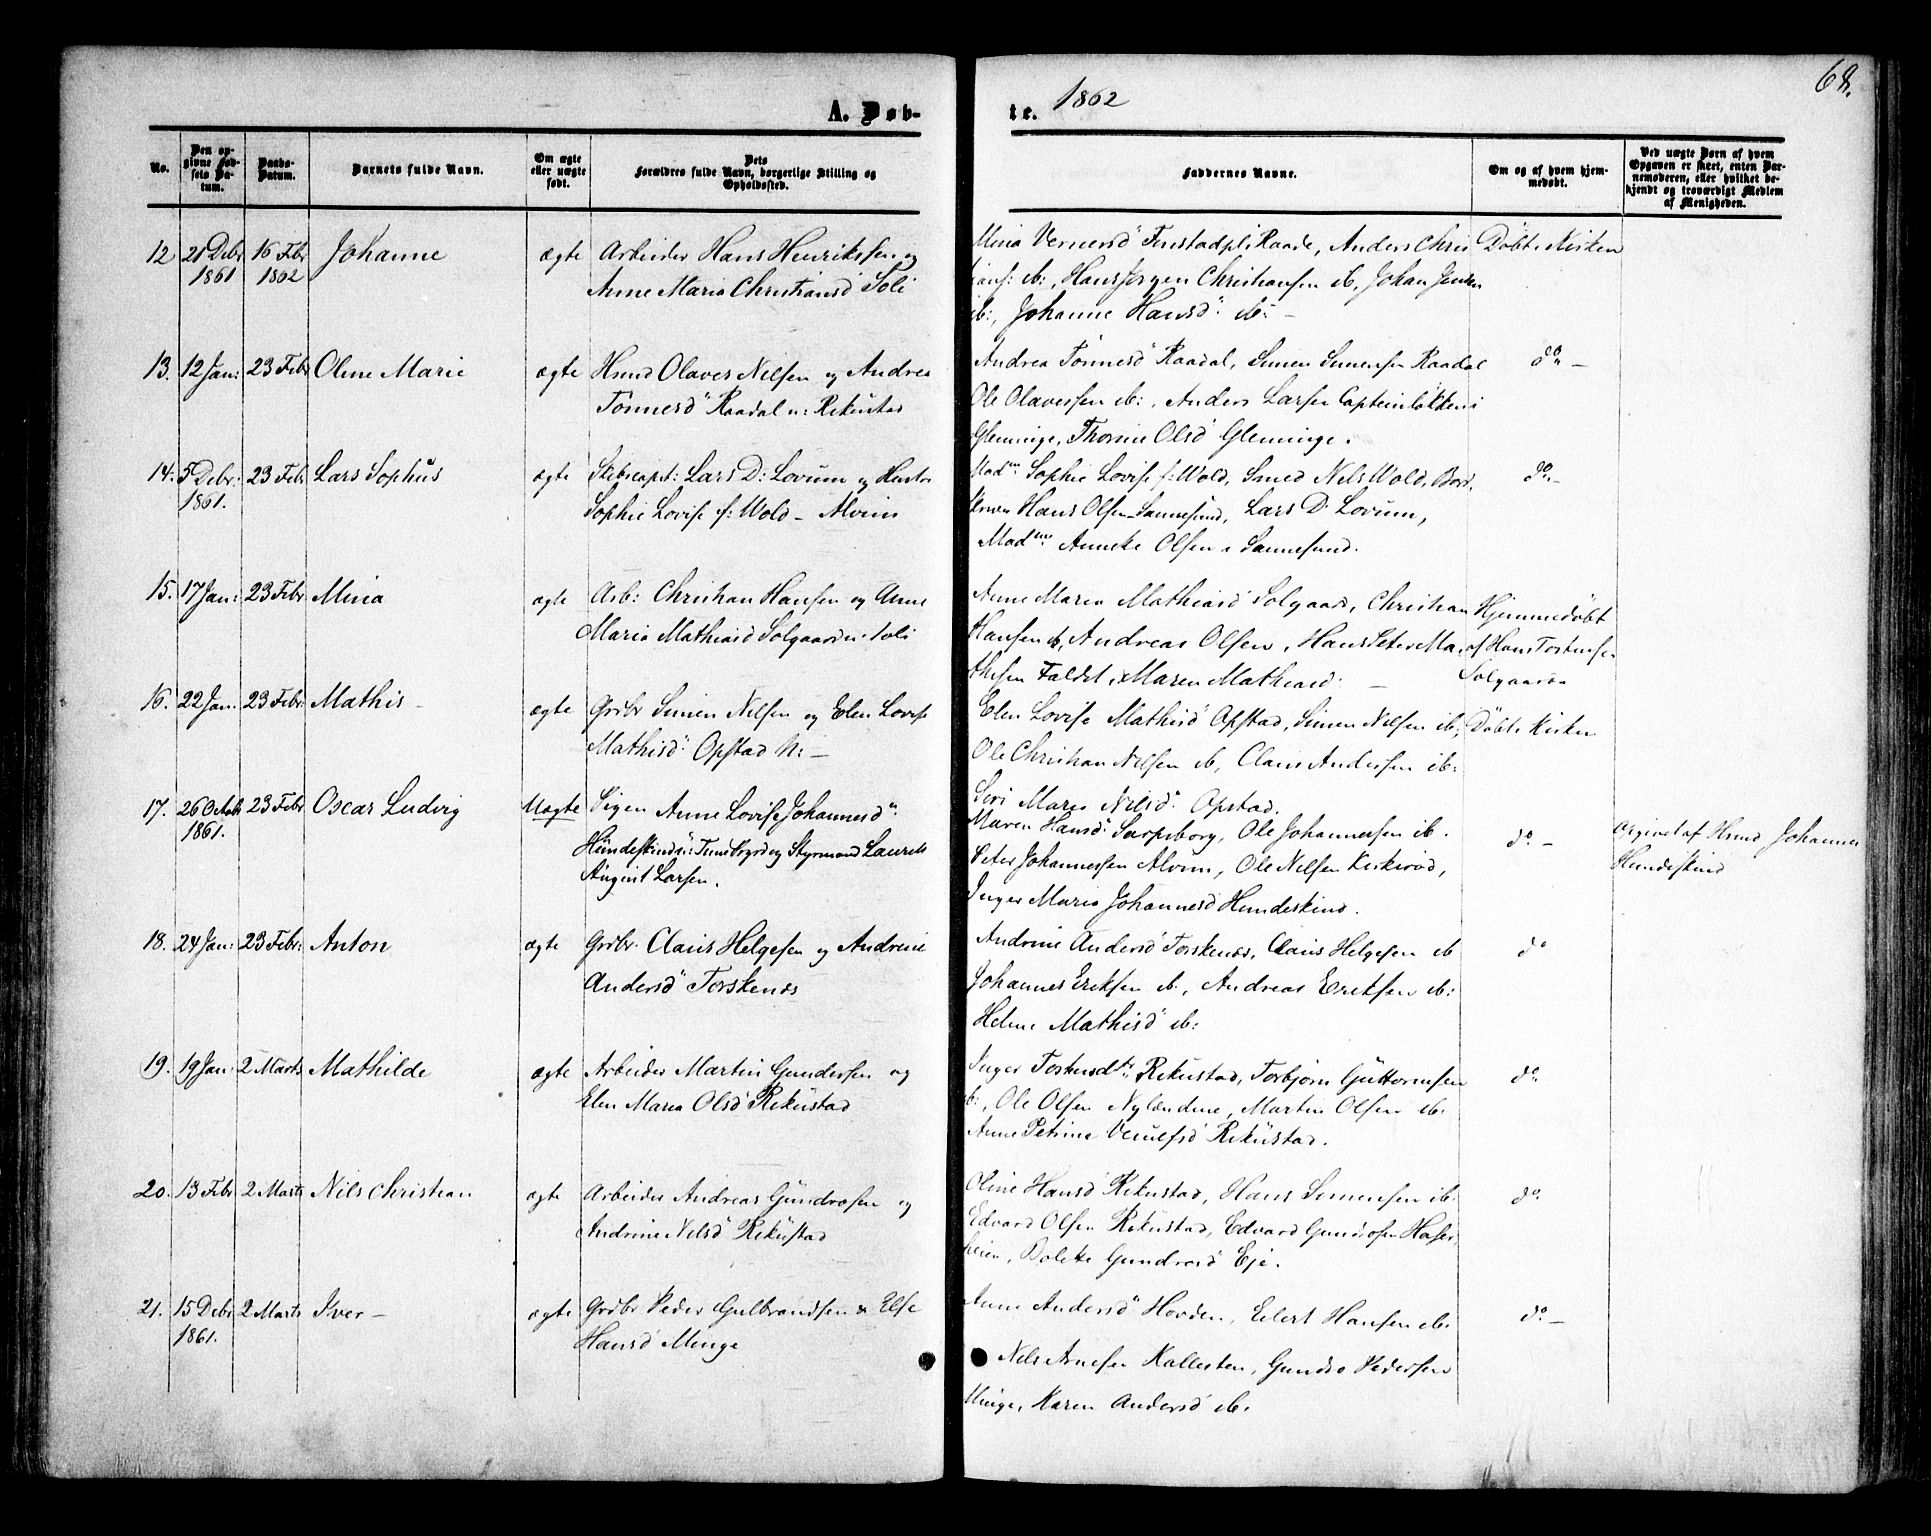 68.
A. Døb-
te. 1862
No.
Den op-
givne Fød-
sels Da-
tum.
Daabs-
Datum.
Barnets fulde Navn.
Om ægte
eller uægte
født.
Dets
Forældres fulde Navn, borgerlige Stilling og
Opholdssted.
Faddernes Navne.
Om og af hvem hjem-
medøbt.
Ved uægte Børn af hvem
Opgaven er skeet, enten Bar-
nemoderen, eller hvilket be-
kjendt og troværdigt Medlem
af Menigheden.
12 21 Debr 16 Febr Johanne ægte Arbeider Hans Henriksen og
1861 1862 Anne Maria Christiansd Soli
Mina Vernersd Raade, Anders Chris Døbt i Kirken
ib:, Hans Jørgen Christiansen ib, Johan Jensen
ib:, Johanne Hansd ib: -
13. 12 Jan: 23 Febr Oline Marie ægte Hmd Olaves Nilsen og Andrea
Tønnesd Raadal u: Rekustad
Andrea Tønnesd Raadal, Simen Simensen Raadal do -
Ole Olavessen ib:, Anders Larsen Capteinløkken i
Glemminge, Thorine Olsd Glemminge.
14. 5 Debr: 23 Febr Lars Sophus ægte Skibscapt: Lars D: Lovum og Hustro
1861. Sophie Lovise f: Wold - Alvim
Madm: Sophie Lovise f: Wold, Smed Nels Wold, do -
Hans Olsen Sannesund, Lars D Lovum,
Madm: Anneke Olsen i Sannesund.
15. 17 Jan: 23 Febr Mina ægte Arb: Christian Hansen og Anne
Maria Mathiasd Solgaard u: Soli
Anne Maria Mathiasd Solgaard, Christian Hjemmedøbt
Hansen ib, Andreas Olsen, Hans Peter Ma- af Hans Torstensen
thisen Faldet, Maren Mathiasd - Solgaard
16. 22 Jan. 23 Febr: Mathis - ægte Grdbr Simen Nilsen og Elen Lovise
Mathisd Opstad N: -
Elen Lovise Mathisd Opstad, Simen Nilsen ib: Døbt i Kirken
Ole Christian Nilsen ib, Claus Andersen ib:
Siri Maria Nilsd Opstad.
17. 26 Octobr 23 Febr Oscar Ludvig Uægte Pigen Anne Lovise Johannesd
1861. Hundeskind u: Tune og Styrmand Laurits
August Larsen.
Maren Hansd Sarpsborg, Ole Johannessen ib. do - Johannes
Peter Johannessen Alvim, Ole Nilsen Kirkerød, Hundeskind
Inger Maria Johannesd Hundeskind.
18. 24 Jan: 23 Febr: Anton ægte Grdbr. Claus Helgesen og Andrine
Andersd Torskenæs
Andrine Andersd Torskenæs, Claus Helgesen ib do
Johannes Eriksen ib, Andreas Eriksen ib:
Helene Mathisd ib:
19. 19 Jan: 2 Marts Mathilde ægte Arbeider Martin Gundersen og
Elen Maria Olsd Rekustad
Inger Rekustad, Torbjørn Guttormsen do
ib:, Ole Olsen Nylændene, Martin Olsen ib.
Anne Petrine Rekustad.
20. 13 Febr 2 Marts Nils Christian ægte Arbeider Andreas Gundrosen og
Andrine Nilsd Rekustad
Oline Hansd Rekustad, Hans Simensen ib. do.
Edvard Olsen Rekustad, Edvard Gundrosen
Bolette Gundrosd Eje.
21. 15 Debr 2 Marts Iver - ægte Grdbr Peder Gulbrandsen & Else
1861. Hansd Minge
Anne Andersd Hovden, Edert Hansen ib: do -
Nels Arnesen Kallesten, Gundro Pedersen
Minge, Karen Andersd ib.